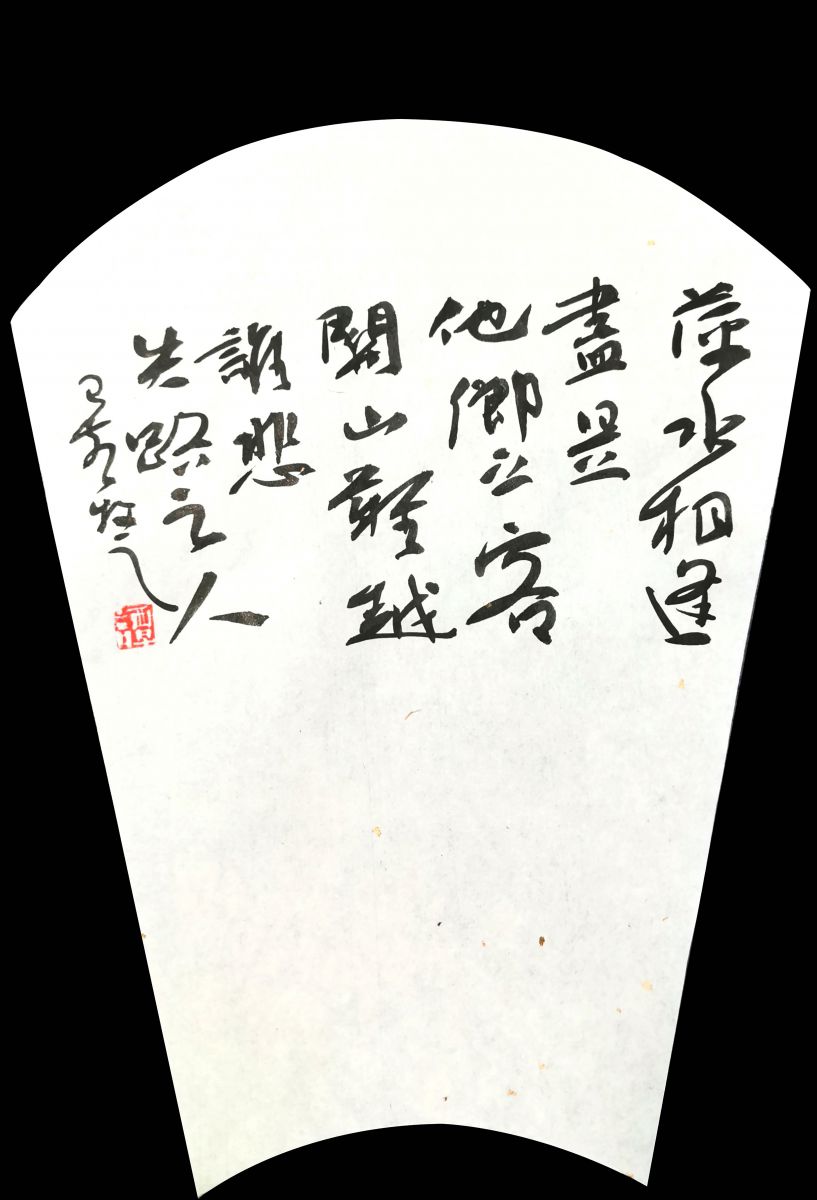 萍水相逢
盡是
他鄉之客
關山難越
誰悲
失路之人